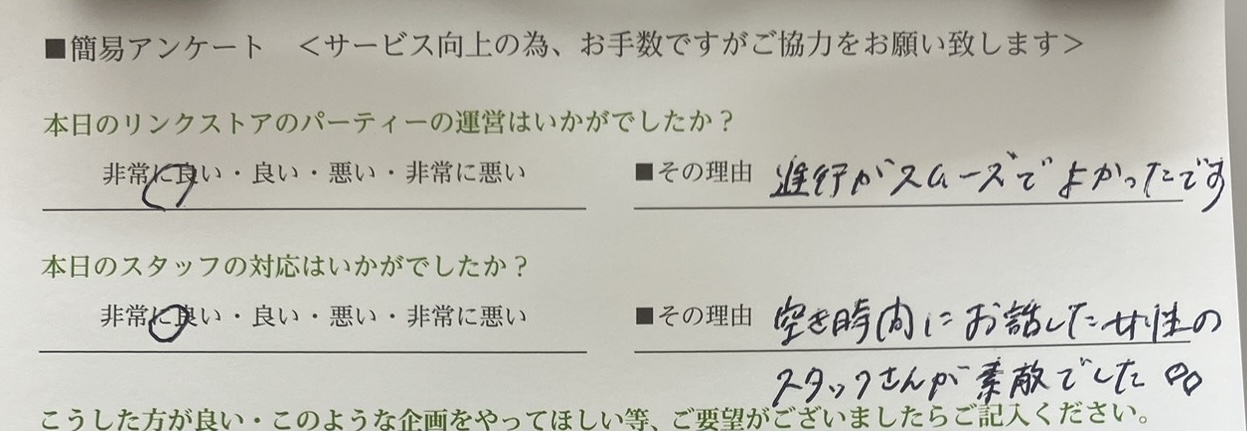 ■簡易アンケート ＜サービス向上の為、お手数ですがご協力をお願い致します＞
本日のリンクストアのパーティーの運営はいかがでしたか？
非常に良い・良い・悪い・非常に悪い ■その理由 進行がスムーズでよかったです
本日のスタッフの対応はいかがでしたか？
非常に良い・良い・悪い・非常に悪い ■その理由 空き時間にお話した女性の
スタッフさんが素敵でした♡♡
こうした方が良い・このような企画をやってほしい等、ご要望がございましたらご記入ください。